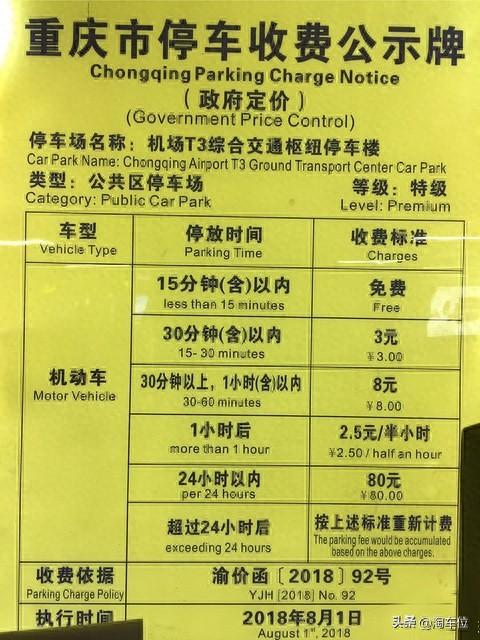 重庆市停车收费公示牌
Chongqing Parking Charge Notice
（政府定价）
(Government Price Control)
停车场名称：机场T3综合交通枢纽停车楼
Car Park Name: Chongqing Airport T3 Ground Transport Center Car Park
类型：公共区停车场 等级：特级
Category: Public Car Park Level: Premium
车型 停放时间 收费标准
Vehicle Type Parking Time Charges
15分钟(含)以内 免费
less than 15 minutes Free
30分钟(含)以内 3元
15- 30 minutes ¥3.00
机动车
Motor Vehicle
30分钟以上，1小时(含)以内 8元
30-60 minutes ¥8.00
1小时后 2.5元/半小时
more than 1 hour ¥2.50 / half an hour
24小时以内 80元
per 24 hours ¥80.00
超过24小时后 按上述标准重新计费
exceeding 24 hours The parking fee would be accumulated
based on the above charges.
收费依据 渝价函〔2018〕92号
Parking Charge Policy YJH [2018] No. 92
执行时间 2018年8月1日
August 1st, 2018
头条 @淘车位